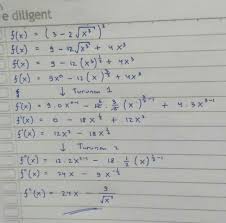 e diligent
f(x) = (3 - 2√x³)²
f(x) = 9 - 12√x³ + 4x³
f(x) = 9 - 12(x³)^½ + 4x³
f(x) = 9x⁰ - 12(x)^3/2 + 4x³
↓ Turunan 1
f'(x) = 9.0x⁰⁻¹ - 12 . 3/2 (x)^3/2-1 + 4.3x³⁻¹
f'(x) = 0 - 18x^½ + 12x²
f'(x) = 12x² - 18x^½
↓ Turunan 2
f"(x) = 12.2x²⁻¹ - 18 . ½ (x)^½-1
f"(x) = 24x - 9x^-½
f"(x) = 24x - 9/√x